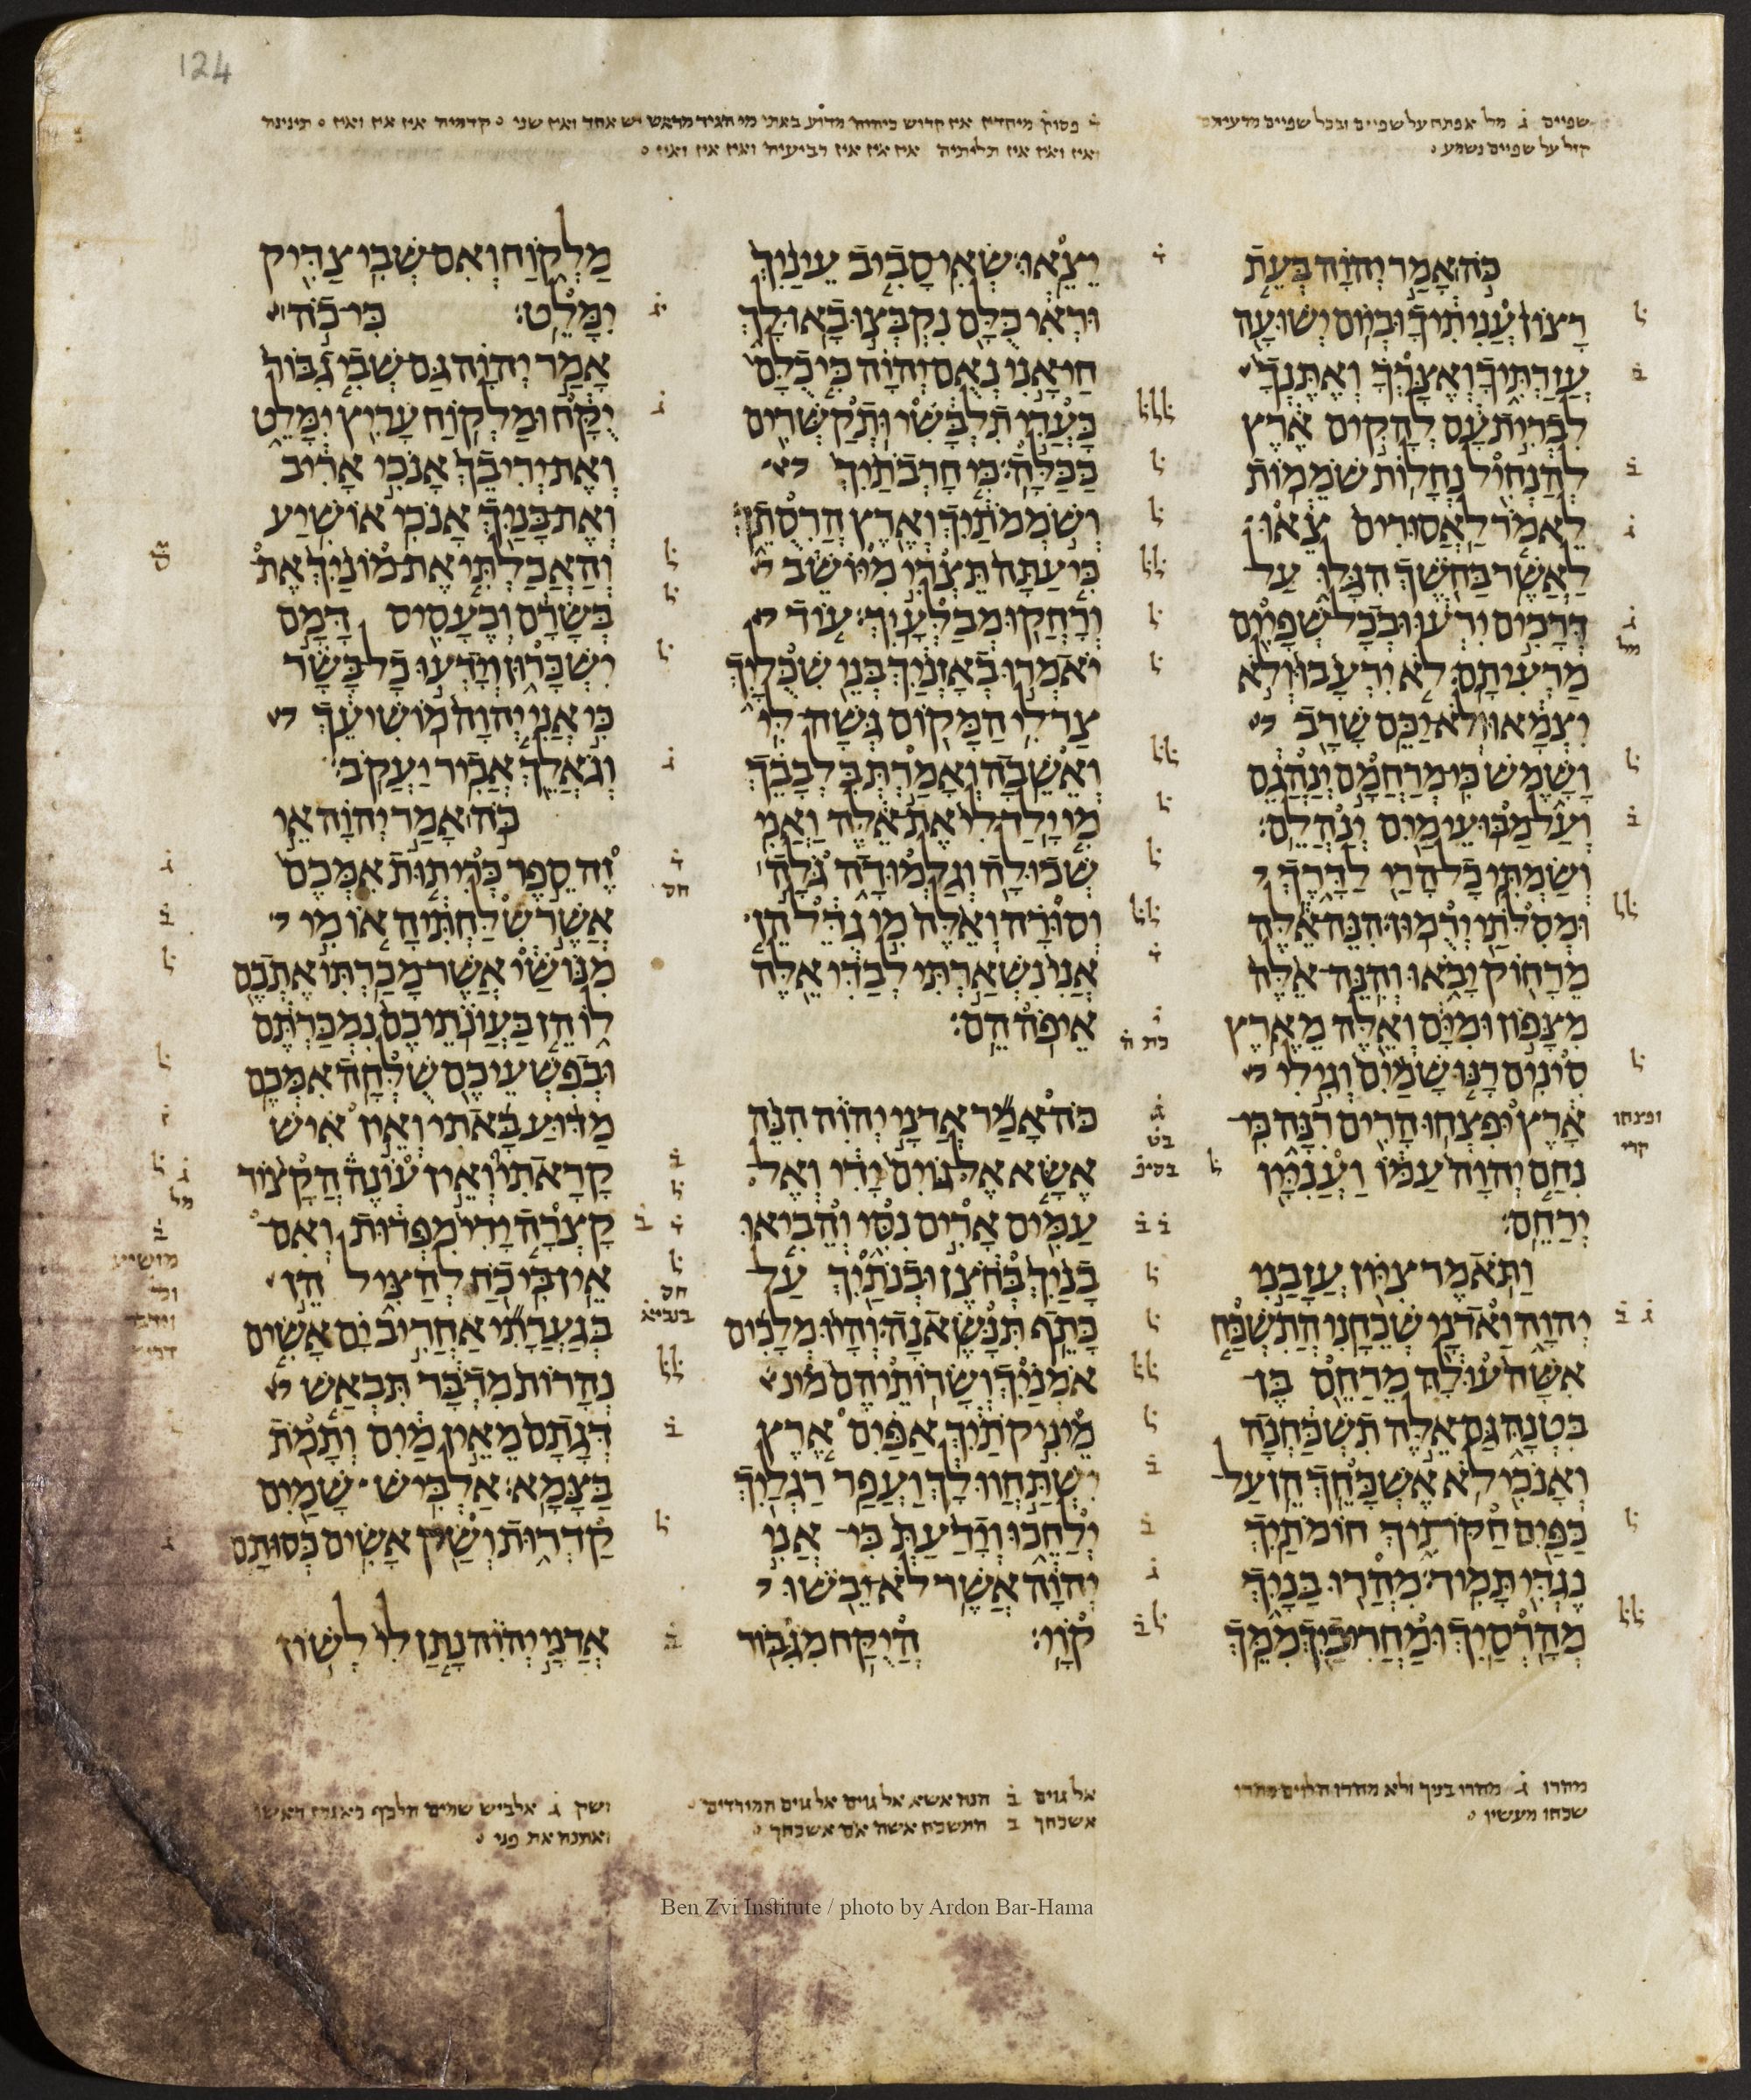 124
שפיים ג̇ מל אפתח על שפיים ובכל שפיים מרעיתם
קול על שפיים נשמע
ד̇ פסוק מיחדין אין קדוש כיהוה מדוע באתי מי הגיד מראש יש אחד ואין שני קדמיה אין אין ואין תינינה
ואין ואין אין תליתיה אין אין אין רביעיה ואין אין ואין
כה אמר יהוה בעת
רצון עניתיך וביום ישועה
עזרתיך ואצרך ואתנך
לברית עם להקים ארץ
להנחיל נחלות שממות
לאמר לאסורים צאו
לאשר בחשך הגלו על
דרכים ירעו ובכל שפיים
מרעיתם׃ לא ירעבו ולא
יצמאו ולא יכם שרב
ושמש כי מרחמם ינהגם
ועל מבועי מים ינהלם׃
ושמתי כל הרי לדרך
ומסלתי ירמון׃ הנה אלה
מרחוק יבאו והנה־אלה
מצפון ומים ואלה מארץ
סינים׃ רנו שמים וגילי
ארץ יפצחו הרים רנה כי־
נחם יהוה עמו ועניו
ירחם׃
ותאמר ציון עזבני
יהוה ואדני שכחני׃ התשכח
אשה עולה מרחם בן־
בטנה גם אלה תשכחנה
ואנכי לא אשכחך׃ הן על־
כפים חקותיך חומתיך
נגדי תמיד׃ מהרו בניך
מהרסיך ומחרביך ממך
יצאו׃ שאי סביב עיניך
וראי כלם נקבצו באו לך
חי אני נאם יהוה כי כלם
כעדי תלבשי ותקשרים
ככלה׃ כי חרבתיך
ושממתיך וארץ הרסתך
כי עתה תצרי מיושב
ורחקו מבלעיך׃ עוד
יאמרו באזניך בני שכליך
צר לי המקום גשה לי
ואשבה׃ ואמרת בלבבך
מי ילד לי את אלה ואני
שכולה וגלמודה גלה
וסורה ואלה מי גדל הן
אני נשארתי לבדי אלה
איפה הם׃
כה אמר אדני יהוה הנה
אשא אל גוים ידי ואל
עמים ארים נסי והביאו
בניך בחצן ובנתיך על
כתף תנשאנה׃ והיו מלכים
אמניך ושרותיהם מיני
מיניקתיך אפים ארץ
ישתחוו לך ועפר רגליך
ילחכו וידעת כי־ אני
יהוה אשר לא יבשו
קוי׃ היקח מגבור
מלקוח ואם שבי צדיק
ימלט׃ כי כה
אמר יהוה גם שבי גבור
יקח ומלקוח עריץ ימלט
ואת יריבך אנכי אריב
ואת בניך אנכי אושיע
והאכלתי את מוניך את
בשרם וכעסיס דמם
ישכרון וידעו כל בשר
כי אני יהוה מושיעך
וגאלך אביר יעקב׃
כה אמר יהוה אי
זה ספר כריתות אמכם
אשר שלחתיה או מי
מנושי אשר מכרתי אתכם
לו הן בעונתיכם נמכרתם
ובפשעיכם שלחה אמכם
מדוע באתי ואין איש
קראתי ואין עונה הקצור
קצרה ידי מפדות ואם־
אין בי כח להציל הן
בגערתי אחריב ים אשים
נהרות מדבר תבאש
דגתם מאין מים ותמת
בצמא׃ אלביש שמים
קדרות ושק אשים כסותם
אדני יהוה נתן לי לשון
מהרו ג̇ מהרו בניך ולא מהרו הלוים מהרו
שכחו מעשיו
אל גוים ב̇ הנה אשא אל גוים אל גוים המורדים
אשכחך ב̇ התשכח אשה אם אשכחך
ושק ג̇ אלביש שמים הלכף כאגמן ראשו
ואתנה את פני
Ben Zvi Institute / photo by Ardon Bar-Hama